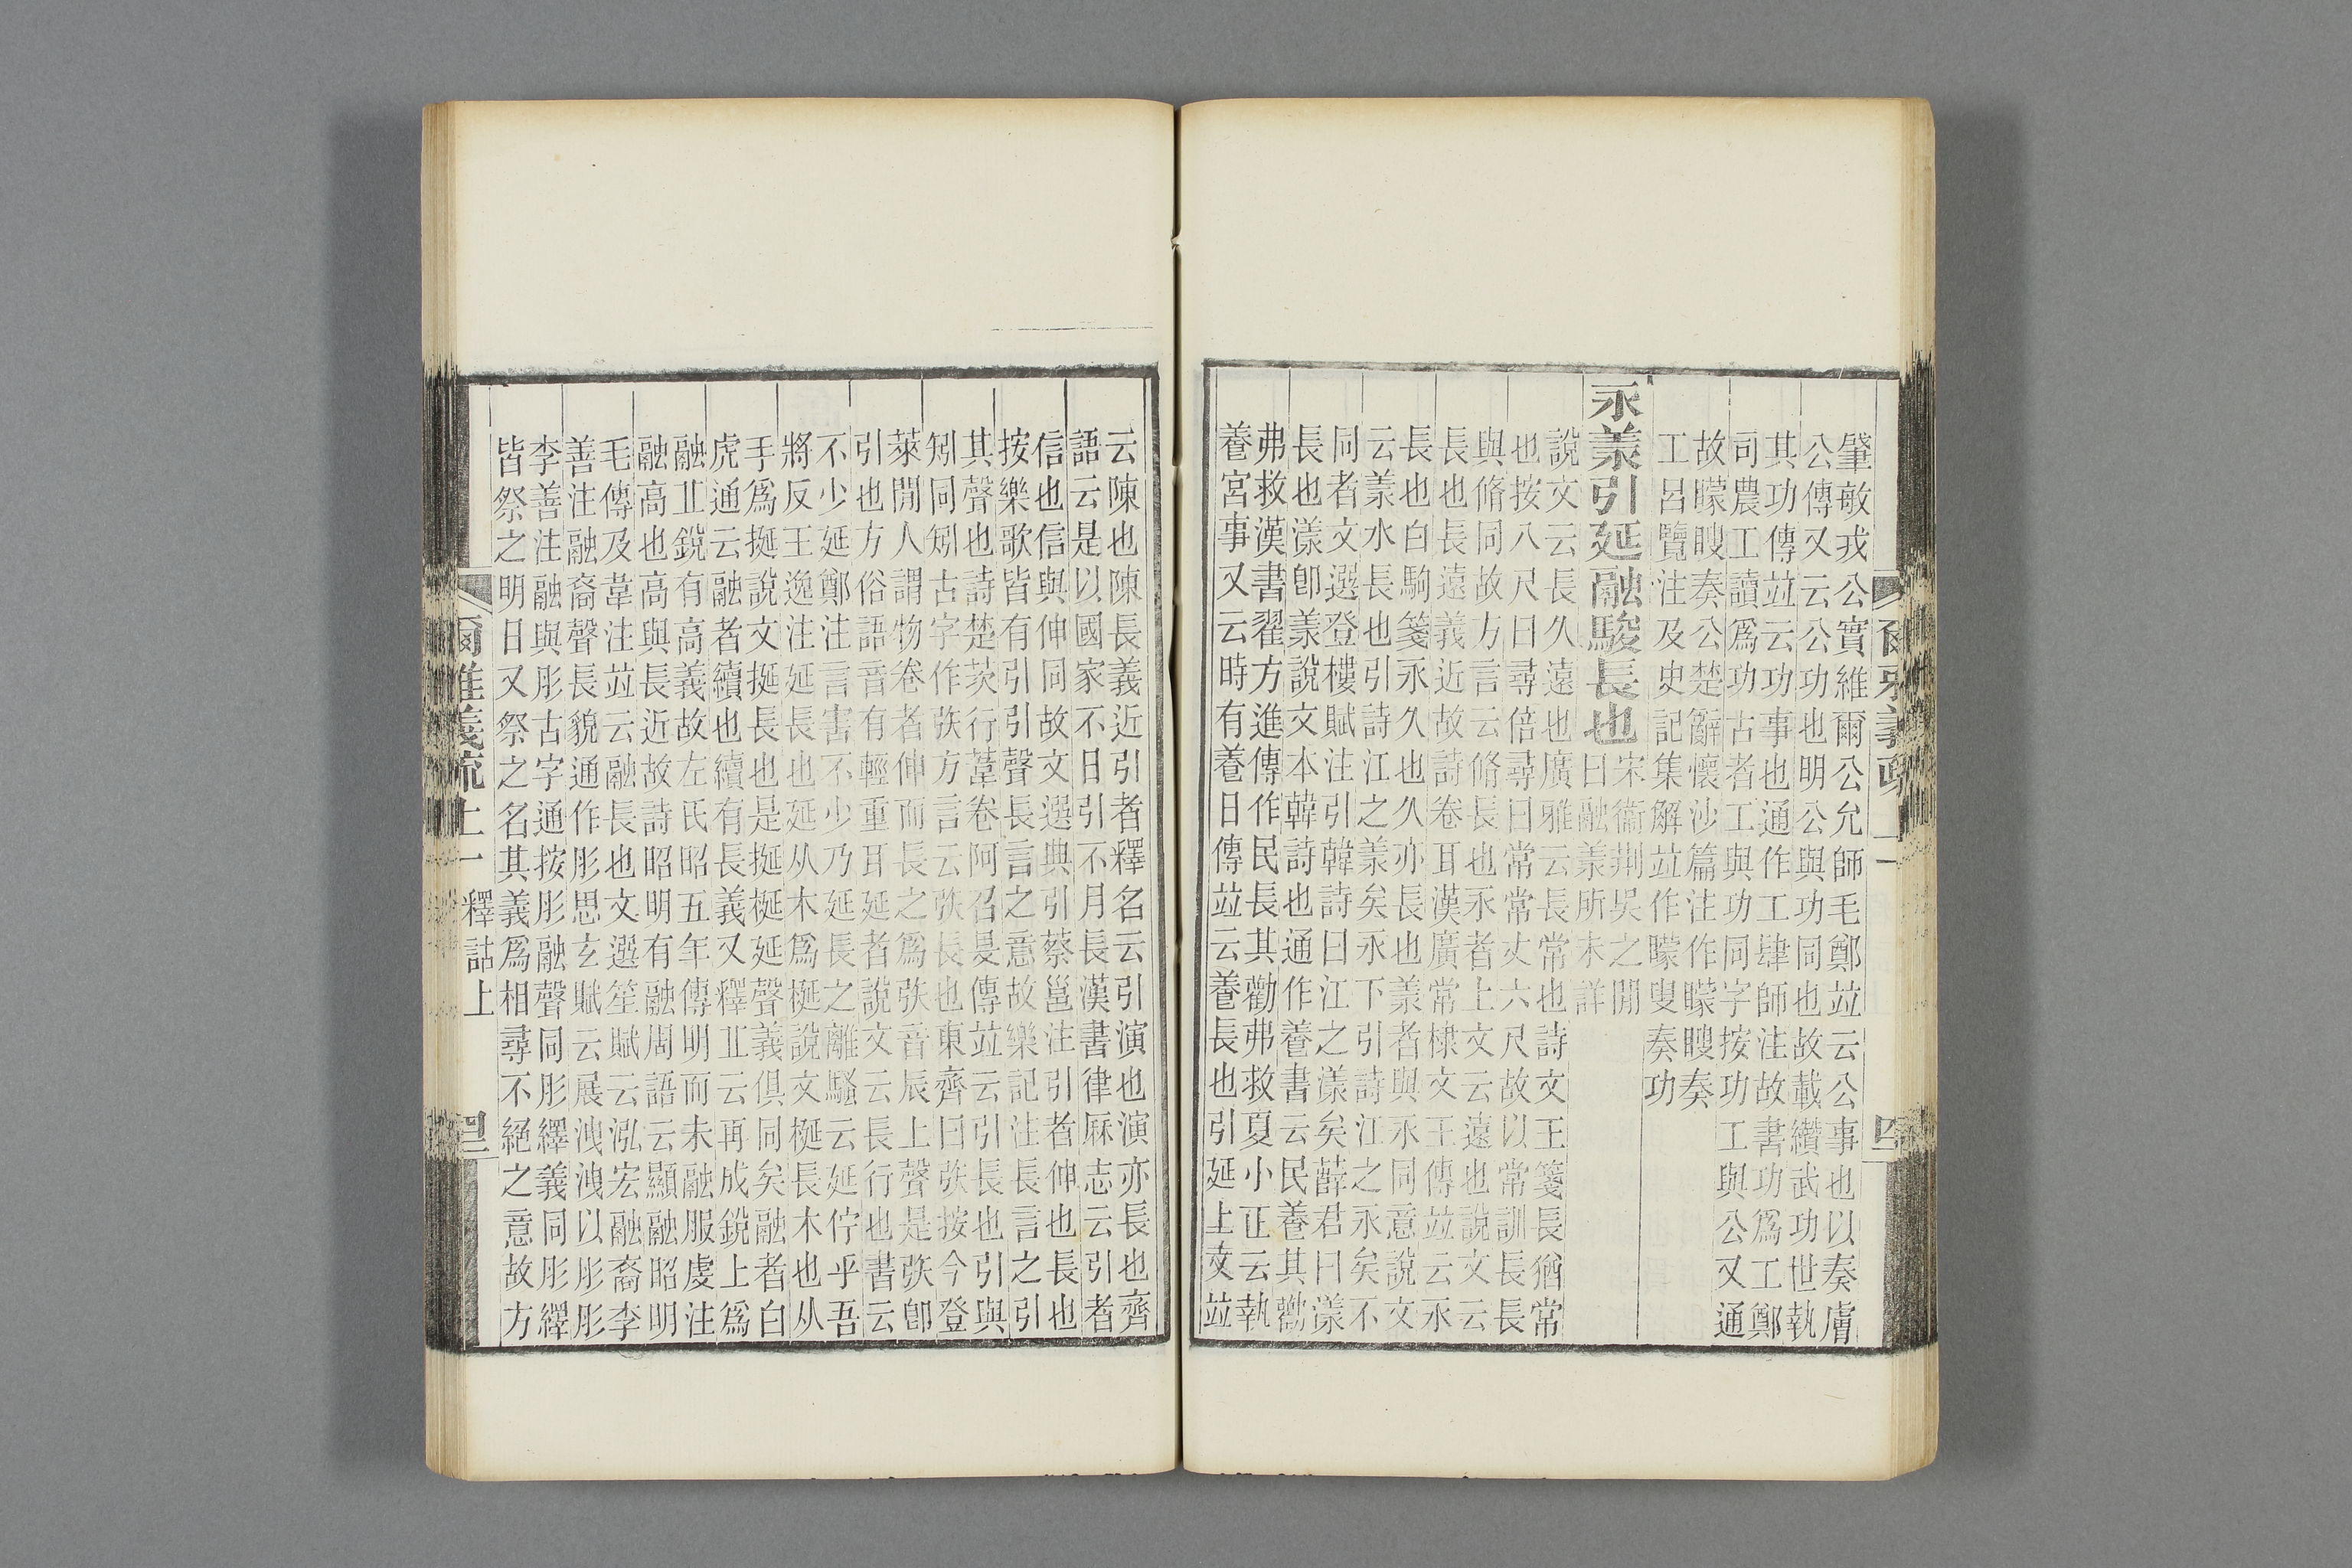 肇敏戎公實維爾公允師毛鄭竝云公事也以奏膚
公傳又云公功也明公與功同也故載纘武功世執
其功傳竝云功事也通作工肆師注故書功爲工鄭
司農工讀爲功古者工與功同字按功工與公又通
故矇瞍奏公楚辭懷沙篇注作矇瞍奏
工呂覽注及史記集解竝作矇叟奏功
永羕引延融駿長也
宋衞荆吳之閒
曰融羕所未詳
說文云長久遠也廣雅云長常也詩文王箋長猶常
也按八尺曰尋倍尋曰常常丈六尺故以常訓長長
與脩同故方言云脩長也永者上文云遠也說文云
長也長遠義近故詩卷耳漢廣常棣文王傳竝云永
長也白駒箋永久也久亦長也羕者與永同意說文
云羕水長也引詩江之羕矣永下引詩江之永矣不
同者文選登樓賦注引韓詩曰江之漾矣薛君曰漾
長也漾卽羕說文本韓詩也通作養書云民養其勸
弗救漢書翟方進傳作民長其勸弗救夏小正云執
養宮事又云時有養日傳竝云養長也引延上文竝
云陳也陳長義近引者釋名云引演也演亦長也齊
語云是以國家不日引不月長漢書律厤志云引者
信也信與伸同故文選典引蔡邕注引者伸也長也
按樂歌皆有引引聲長言之意故樂記注長言之引
其聲也詩楚茨行葦卷阿召旻傳竝云引長也引與
矧同矧古字作弞方言云弞長也東齊曰弞按今登
萊閒人謂物卷者伸而長之爲弞音辰上聲是弞卽
引也方俗語音有輕重耳延者說文云長行也書云
不少延鄭注言害不少乃延長之離騷云延佇乎吾
將反王逸注延長也延从木爲梴說文梴長木也从
手爲挻說文挻長也是挻梴延聲義俱同矣融者白
虎通云融者續也續有長義又釋丠云再成銳上爲
融丠銳有高義故左氏昭五年傳明而未融服虔注
融高也高與長近故詩昭明有融周語云顯融昭明
毛傳及韋注竝云融長也文選笙賦云泓宏融裔李
善注融裔聲長貌通作肜思玄賦云展洩洩以肜肜
李善注融與肜古字通按肜融聲同肜繹義同肜繹
皆祭之明日又祭之名其義爲相尋不絕之意故方
爾雅義疏上一 釋詁上